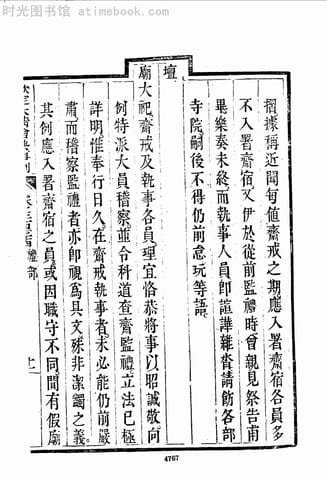 时光图书馆 - atimebook.com
摺據稱近聞每値齋戒之期應入署齋宿各員多
不入署齋宿又伊於從前監禮時曾親見祭告南
畢樂奏未終而執事人員卽諠譁雜沓請飭各部
寺院嗣後不得仍前怠玩等語
壇
廟大祀齋戒及執事各員理宜恪恭將事以昭誠敬向
例特派大員稽察並令科道查齋監禮立法已極
詳明惟奉行日久在齋戒執事者未必能仍前嚴
肅而稽察監禮者亦卽視爲具文殊非潔蠲之義
其例應入署齋宿之員或因職守不同間有假廟
欽定大淸會典事例
禮部
4767
时光图书馆 - atimebook.com